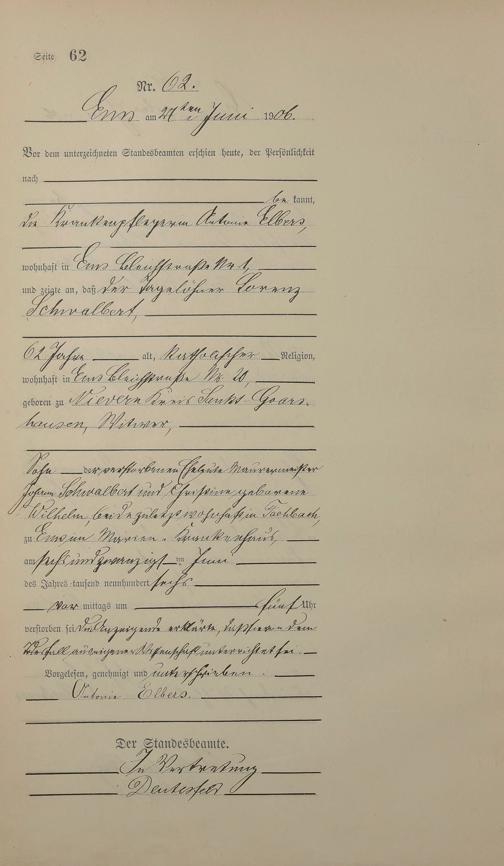 Seite 62
Nr. 62.
Ems am 27ten Juni 1906.
Vor dem unterzeichneten Standesbeamten erschien heute, der Persönlichkeit
nach
be kannt,
die Krankenpflegerin Antonie Elbers,
wohnhaft in Ems Bleichstraße Nr 1,
und zeigte an, daß der Tagelöhner Lorenz
Schwalbert,
62 Jahre alt, katholischer Religion,
wohnhaft in Ems Bleichstraße Nr. 20,
geboren zu Nievern Kreis Sankt Goars-
hausen, Witwer,
Sohn der verstorbenen Eheleute Maurermeister
Johann Schwalbert und Christine geborene
Wilhelm, beide zuletzt wohnhaft in Fachbach,
zu Ems im Marien-Krankenhaus,
am sechsundzwanzigsten Juni
des Jahres tausend neunhundert sechs
vor mittags um fünf Uhr
verstorben sei. Die Anzeigende erklärte, daß sie von dem
Sterbefall aus eigener Wissenschaft unterrichtet sei.
Vorgelesen, genehmigt und unterschrieben.
Antonie Elbers.
Der Standesbeamte.
In Vertretung